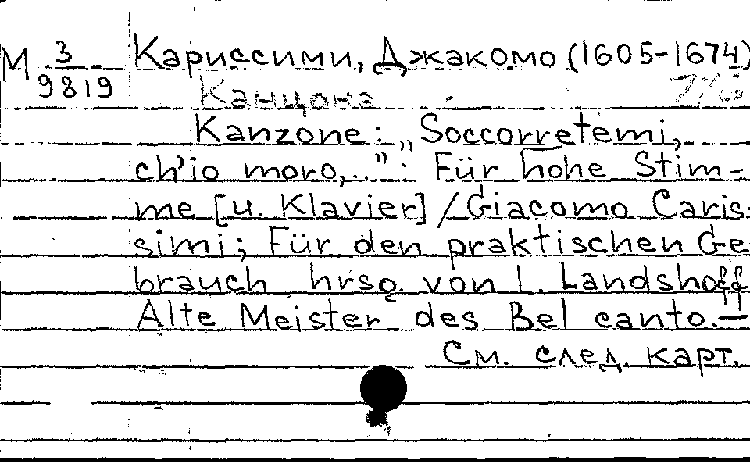 М 3/9819 Кариссими, Джакомо (1605-1674)
Канцона
Kanzone: „Soccorretemi,
ch'io moro,..": Für hohe Stim-
me [u. Klavier] / Giacomo Caris-
simi; Für den praktischen Ge
brauch hrsg. von L. Landshoff
Alte Meister des Bel canto.—
См. след. карт.